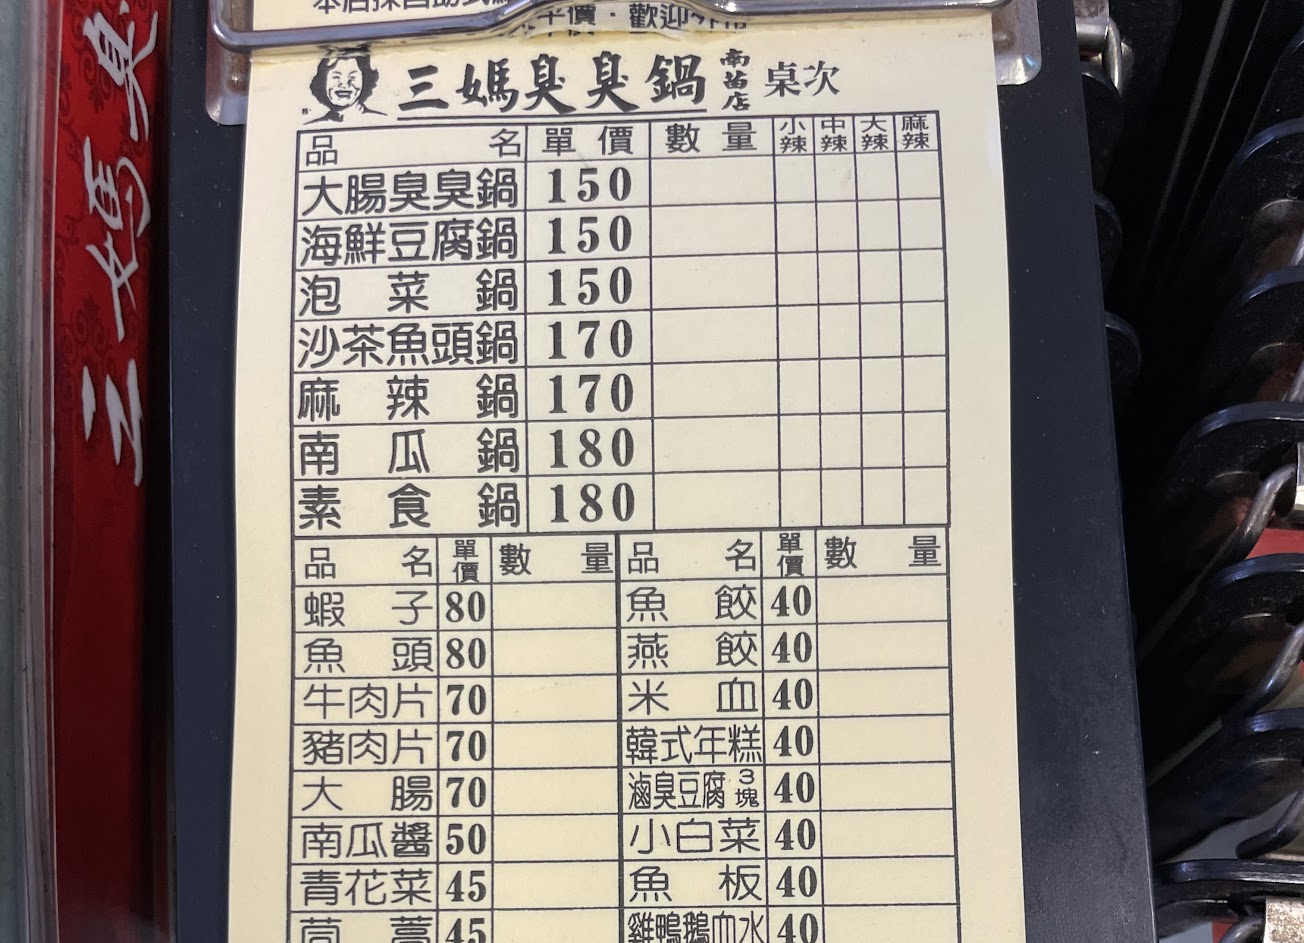 平價．歡迎
三媽臭臭鍋 南苗店 桌次
品名 單價 數量 小辣 中辣 大辣 麻辣
大腸臭臭鍋 150
海鮮豆腐鍋 150
泡菜鍋 150
沙茶魚頭鍋 170
麻辣鍋 170
南瓜鍋 180
素食鍋 180
品名 單價 數量 品名 單價 數量
蝦子 80 魚餃 40
魚頭 80 燕餃 40
牛肉片 70 米血 40
豬肉片 70 韓式年糕 40
大腸 70 滷臭豆腐3塊 40
南瓜醬 50 小白菜 40
青花菜 45 魚板 40
茼蒿 45 雞鴨鵝血水 40
三媽臭